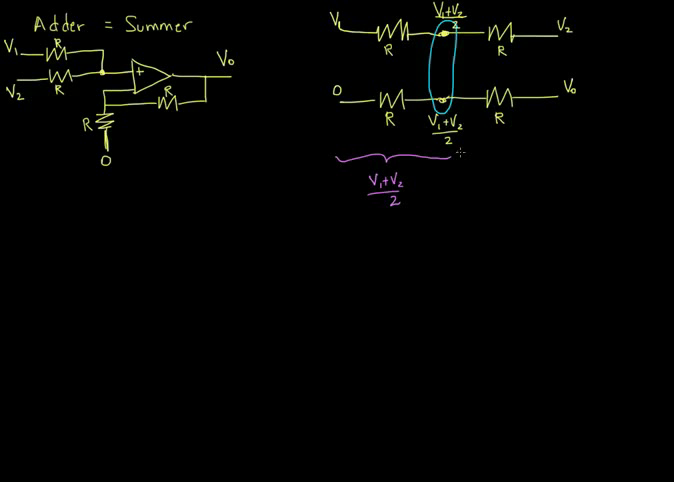 Adder = Summer
V₁ R
V₂ R
+
R
V₀
R
0
V₁ R (V₁+V₂)/2 R V₂
0 R (V₁+V₂)/2 R V₀
(V₁+V₂)/2